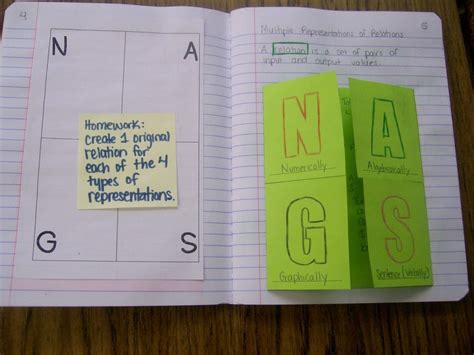 4
N A
Homework:
Create 1 original
relation for
each of the 4
types of
representations.
G S
5
Multiple Representations of Relations
A relation is a set of pairs of
input and output values.
N A
Numerically Algebraically
G S
Graphically Sentence (Verbally)